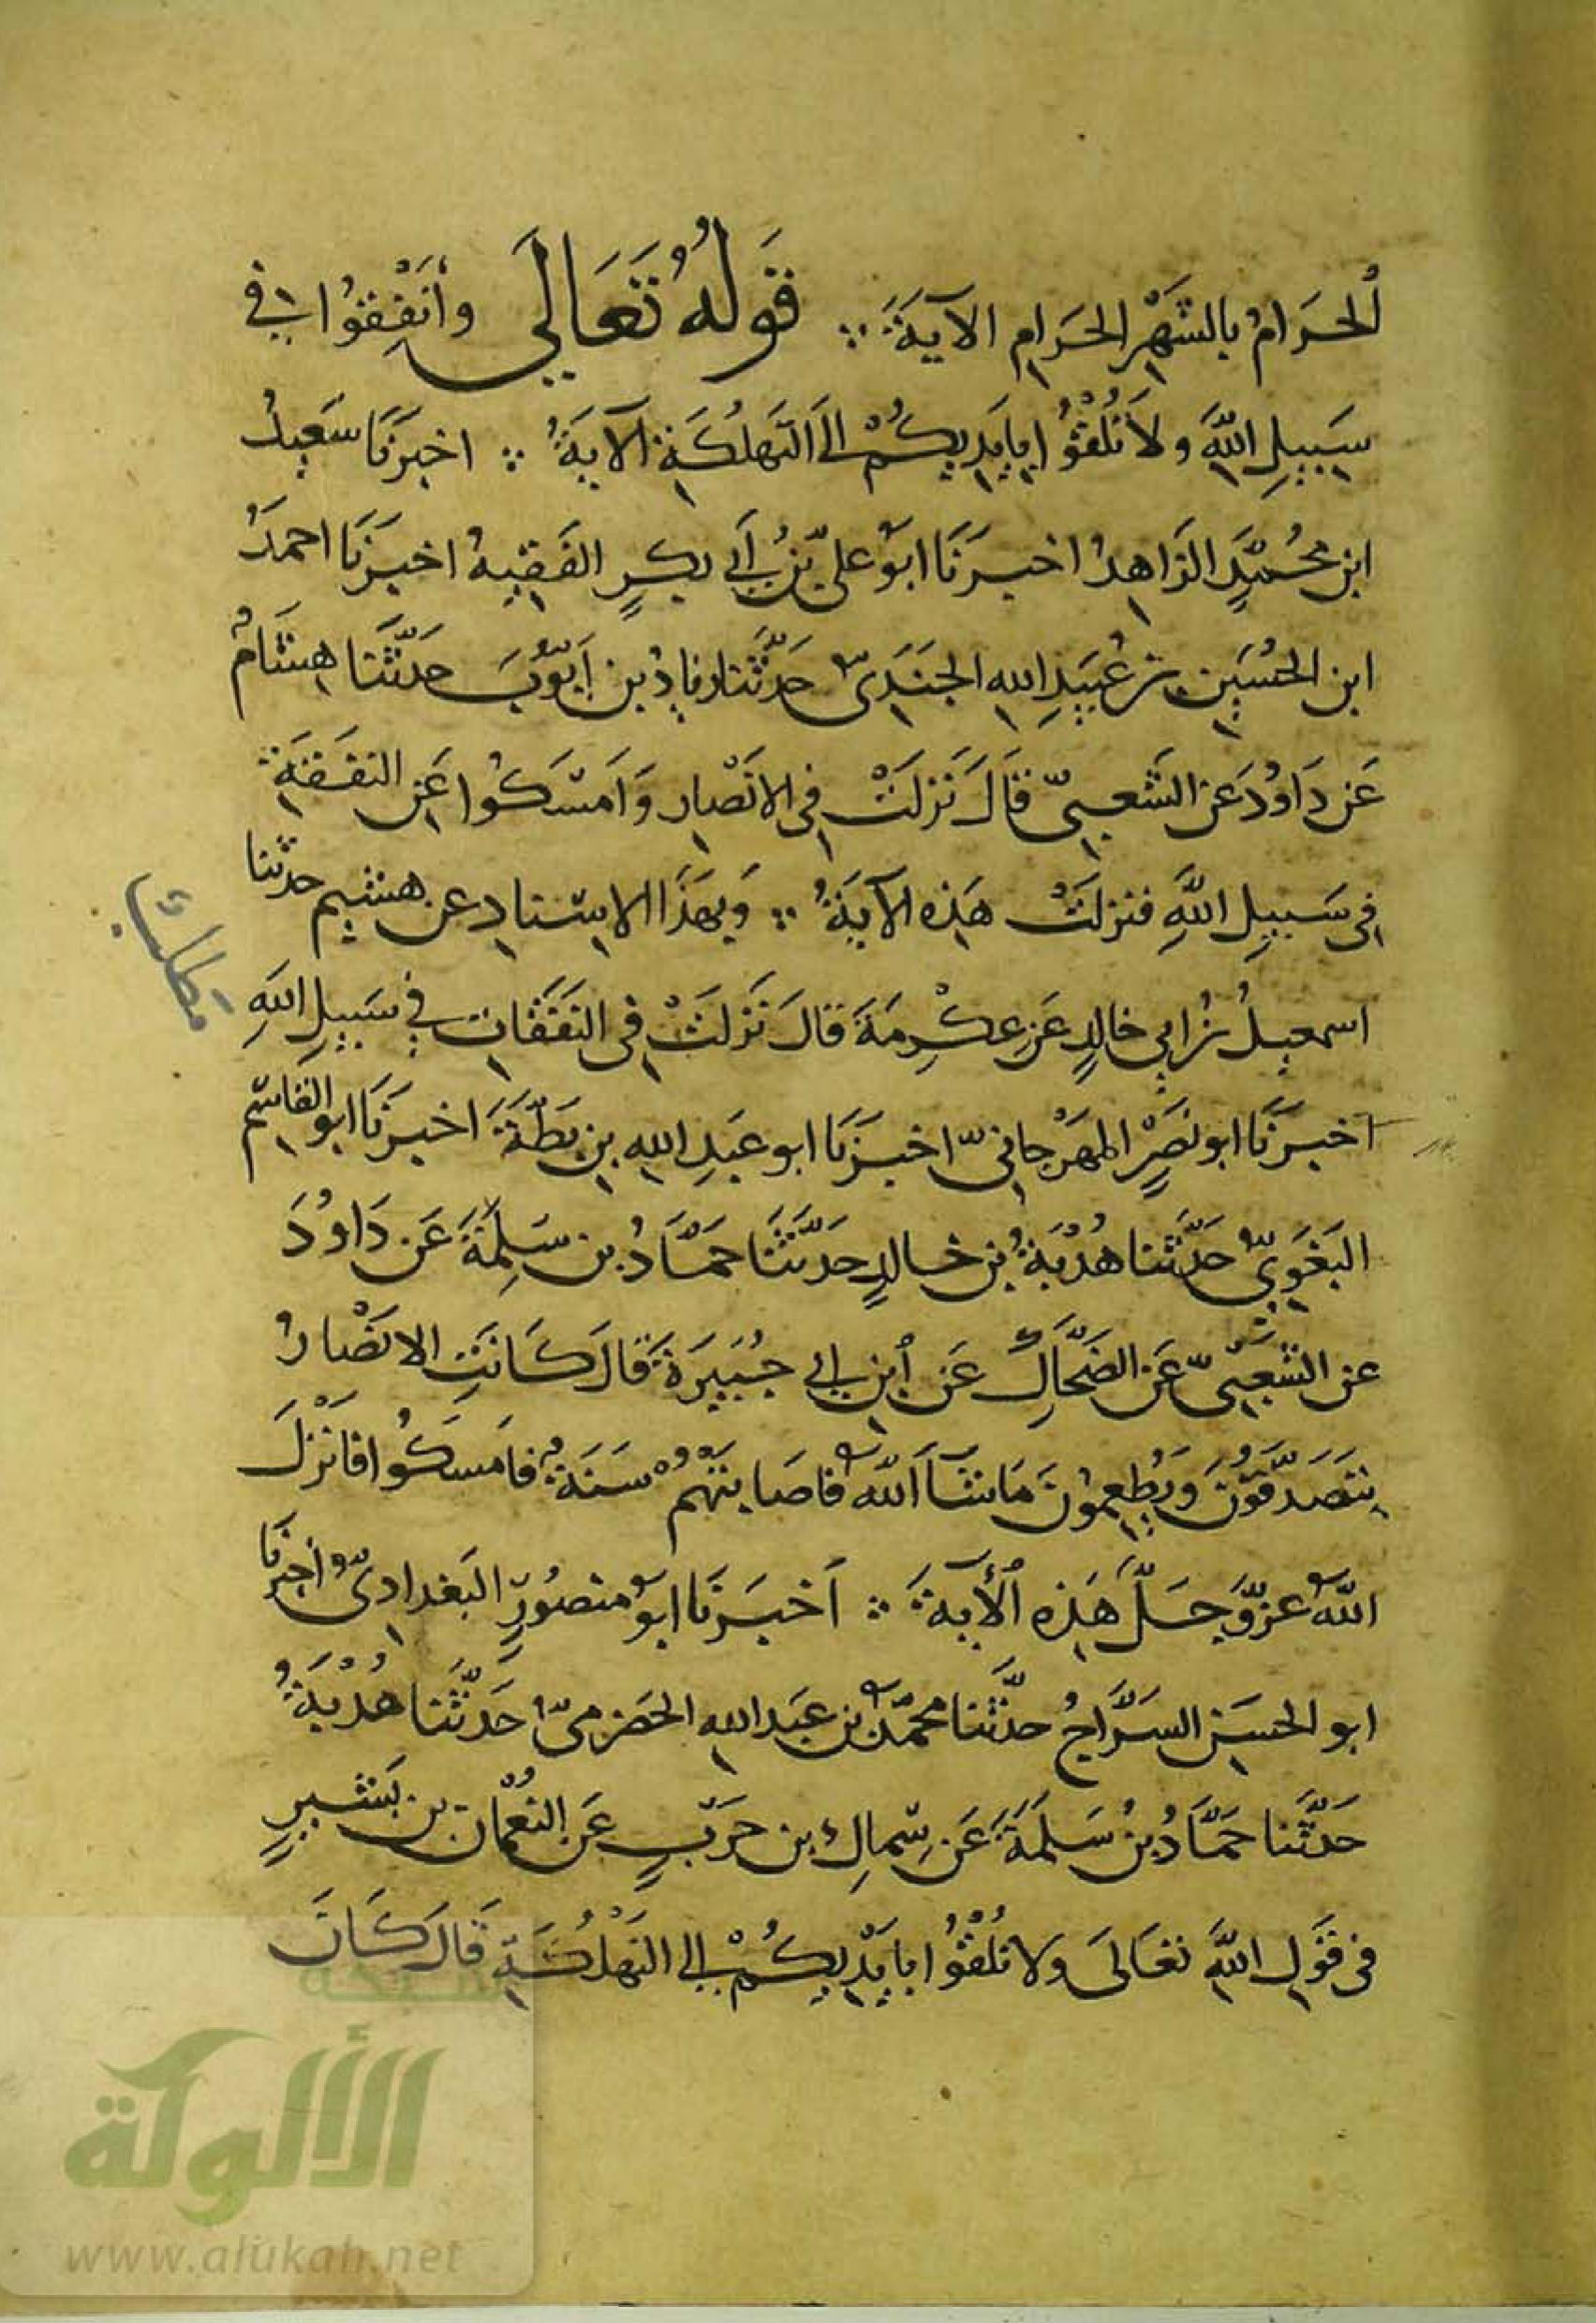 الحَرَامُ بالشَّهْرِ الحَرَامِ الآيَةَ ∴ قَولهُ تَعَالَى وأَنْفِقُوا في
سَبِيلِ اللَّهِ ولَا تُلْقُوا بِأَيْدِيكُمْ إلى التَّهْلُكَةِ الآيَةُ ∴ اخبَرَنَا سَعِيدُ
ابن محُمَّدٍ الزَاهِدُ اخبَرَنَا ابُو علىّ بْنُ أبى بكرٍ الفَقِيهُ اخبَرَنَا احمَدُ
ابن الحُسَينِ بْن عُبَيدِ الله الجَنَدِىّ حَدَّثَنَا زيادُ بن أيُّوبَ حَدَّثَنَا هِشَامُ
عَن دَاوُدَ عَن الشَّعبِىّ قَالَ نَزَلَتْ فِى الانْصَارِ وَامْسَكُوا عَنِ النَفَقَةِ
فِى سَبِيلِ اللَّهِ فنزلَتْ هَذِه الآيَةُ ∴ وَبِهَذَا الاسْنَادِ عن هشيم حدثنا
اسمعِيلُ بْنُ ابِي خالدٍ عَن عِكْرِمَةَ قالَ نَزَلَتْ فِى النَفَقَاتِ في سَبِيلِ اللهِ
اخبرَنَا ابو نَصْرٍ المهْرَجانىّ اخبَرَنَا ابو عَبدِ اللهِ بنِ بَطَّةَ اخبرَنَا ابو القَاسِم
البَغَوِىُّ حَدَّثَنَا هُدْبَةُ بن خالدٍ حَدَّثَنَا حَمَّادُ بن سَلَمَةَ عَن دَاوُدَ
عن الشَّعبِىّ عَن الضَحَّاكِ عَن ابنِ ابى جُبَيرَةَ قَالَ كَانَتِ الانْصَارُ
يتَصَدَّقُونَ وَيُطْعِمُونَ مَا شَاءَ اللّهُ فاصَابَتْهُمْ سَنَةُ فامسَكُوا فانْزَلَ
اللّهُ عزَّوَجَلَّ هَذِه الآيةَ ∴ اخبَرَنَا ابوُ منصُورٍ البَغدادِىُّ اخبرنا
ابو الحسَنِ السَرَّاجُ حدَّثَنا محمّدُ بن عَبدِ اللهِ الحَضرمىُّ حَدَّثَنَا هُدْبَةُ
حَدَّثَنا حَمَّادُ بنُ سَلَمَةَ عَن سِماكِ بن حَرْبٍ عَن النُّعْمَانِ بن بَشِيرٍ
فى قَولِ اللَّهِ تعَالَى ولا تُلْقُوا بِايْدِيكُمْ إلى التَهْلُكَةِ قَالَ كَانَ
مطلب
شبكة
الألوكة
www.alukah.net